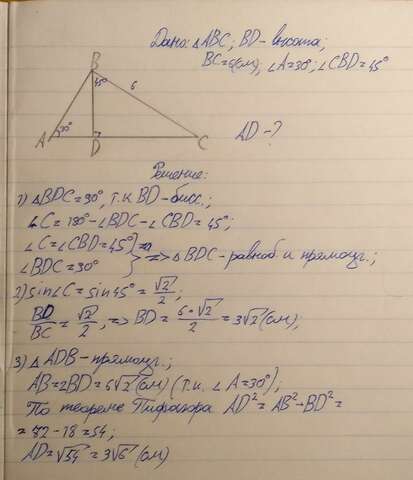 Дано: △ABC; BD-высота;
BC=6(см); ∠A=30°; ∠CBD=45°
B
45°
6
A
30°
D
C
AD-?
Решение:
1) △BDC=90°, т.к BD-бисс.;
∠C=180°-∠BDC-∠CBD=45°;
∠C=∠CBD=45°
∠BDC=30° } => △BDC-равноб. и прямоуг.;
2) sin∠C=sin45°=√2/2;
BD/BC=√2/2, => BD=6·√2/2=3√2(см);
3) △ADB-прямоуг.;
AB=2BD=6√2(см) (т.к. ∠A=30°);
По теореме Пифагора AD²=AB²-BD²=
=72-18=54;
AD=√54=3√6(см)